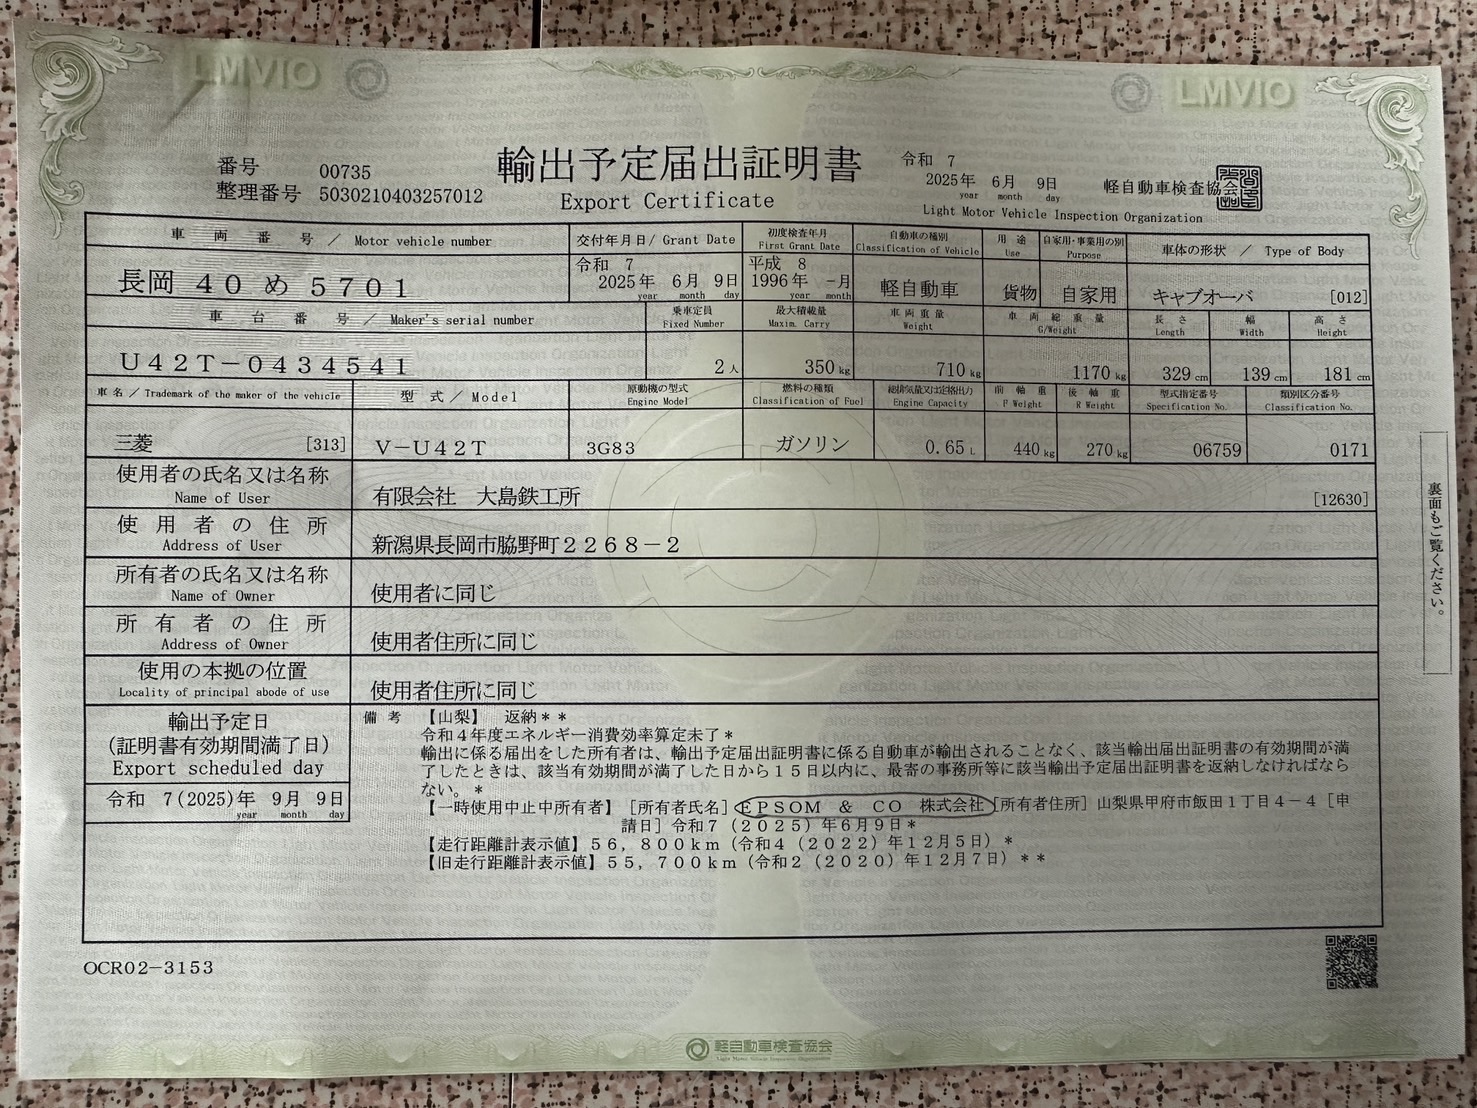 LMVIO
LMVIO
番号 00735
整理番号 5030210403257012
輸出予定届出証明書
Export Certificate
令和 7
2025年 6月 9日
year month day
軽自動車検査協会
Light Motor Vehicle Inspection Organization
車両番号 / Motor vehicle number
交付年月日/ Grant Date
初度検査年月
First Grant Date
自動車の種別
Classification of Vehicle
用途
Use
自家用・事業用の別
Purpose
車体の形状 / Type of Body
長岡 40 め 5701
令和 7
2025年 6月 9日
year month day
平成 8
1996年 -月
year month
軽自動車
貨物
自家用
キャブオーバ [012]
車台番号 / Maker's serial number
乗車定員
Fixed Number
最大積載量
Maxim. Carry
車両重量
Weight
車両総重量
G/Weight
長さ
Length
幅
Width
高さ
Height
U42T-0434541
2人
350kg
710kg
1170kg
329cm
139cm
181cm
車名/ Trademark of the maker of the vehicle
型式/Model
原動機の型式
Engine Model
燃料の種類
Classification of Fuel
総排気量又は定格出力
Engine Capacity
前軸重
F Weight
後軸重
R Weight
型式指定番号
Specification No.
類別区分番号
Classification No.
三菱 [313]
V-U42T
3G83
ガソリン
0.65L
440kg
270kg
06759
0171
使用者の氏名又は名称
Name of User
有限会社 大島鉄工所 [12630]
使用者の住所
Address of User
新潟県長岡市脇野町2268-2
所有者の氏名又は名称
Name of Owner
使用者に同じ
所有者の住所
Address of Owner
使用者住所に同じ
使用の本拠の位置
Locality of principal abode of use
使用者住所に同じ
輸出予定日
(証明書有効期間満了日)
Export scheduled day
令和 7(2025)年 9月 9日
year month day
備考 【山梨】 返納**
令和4年度エネルギー消費効率算定未了*
輸出に係る届出をした所有者は、輸出予定届出証明書に係る自動車が輸出されることなく、該当輸出届出証明書の有効期間が満
了したときは、該当有効期間が満了した日から15日以内に、最寄の事務所等に該当輸出予定届出証明書を返納しなければなら
ない。*
【一時使用中止中所有者】[所有者氏名]EPSOM & CO 株式会社[所有者住所]山梨県甲府市飯田1丁目4-4[申
請日]令和7(2025)年6月9日*
【走行距離計表示値】56,800km(令和4(2022)年12月5日)*
【旧走行距離計表示値】55,700km(令和2(2020)年12月7日)**
裏面もご覧ください。
OCR02-3153
軽自動車検査協会
Light Motor Vehicle Inspection Organization